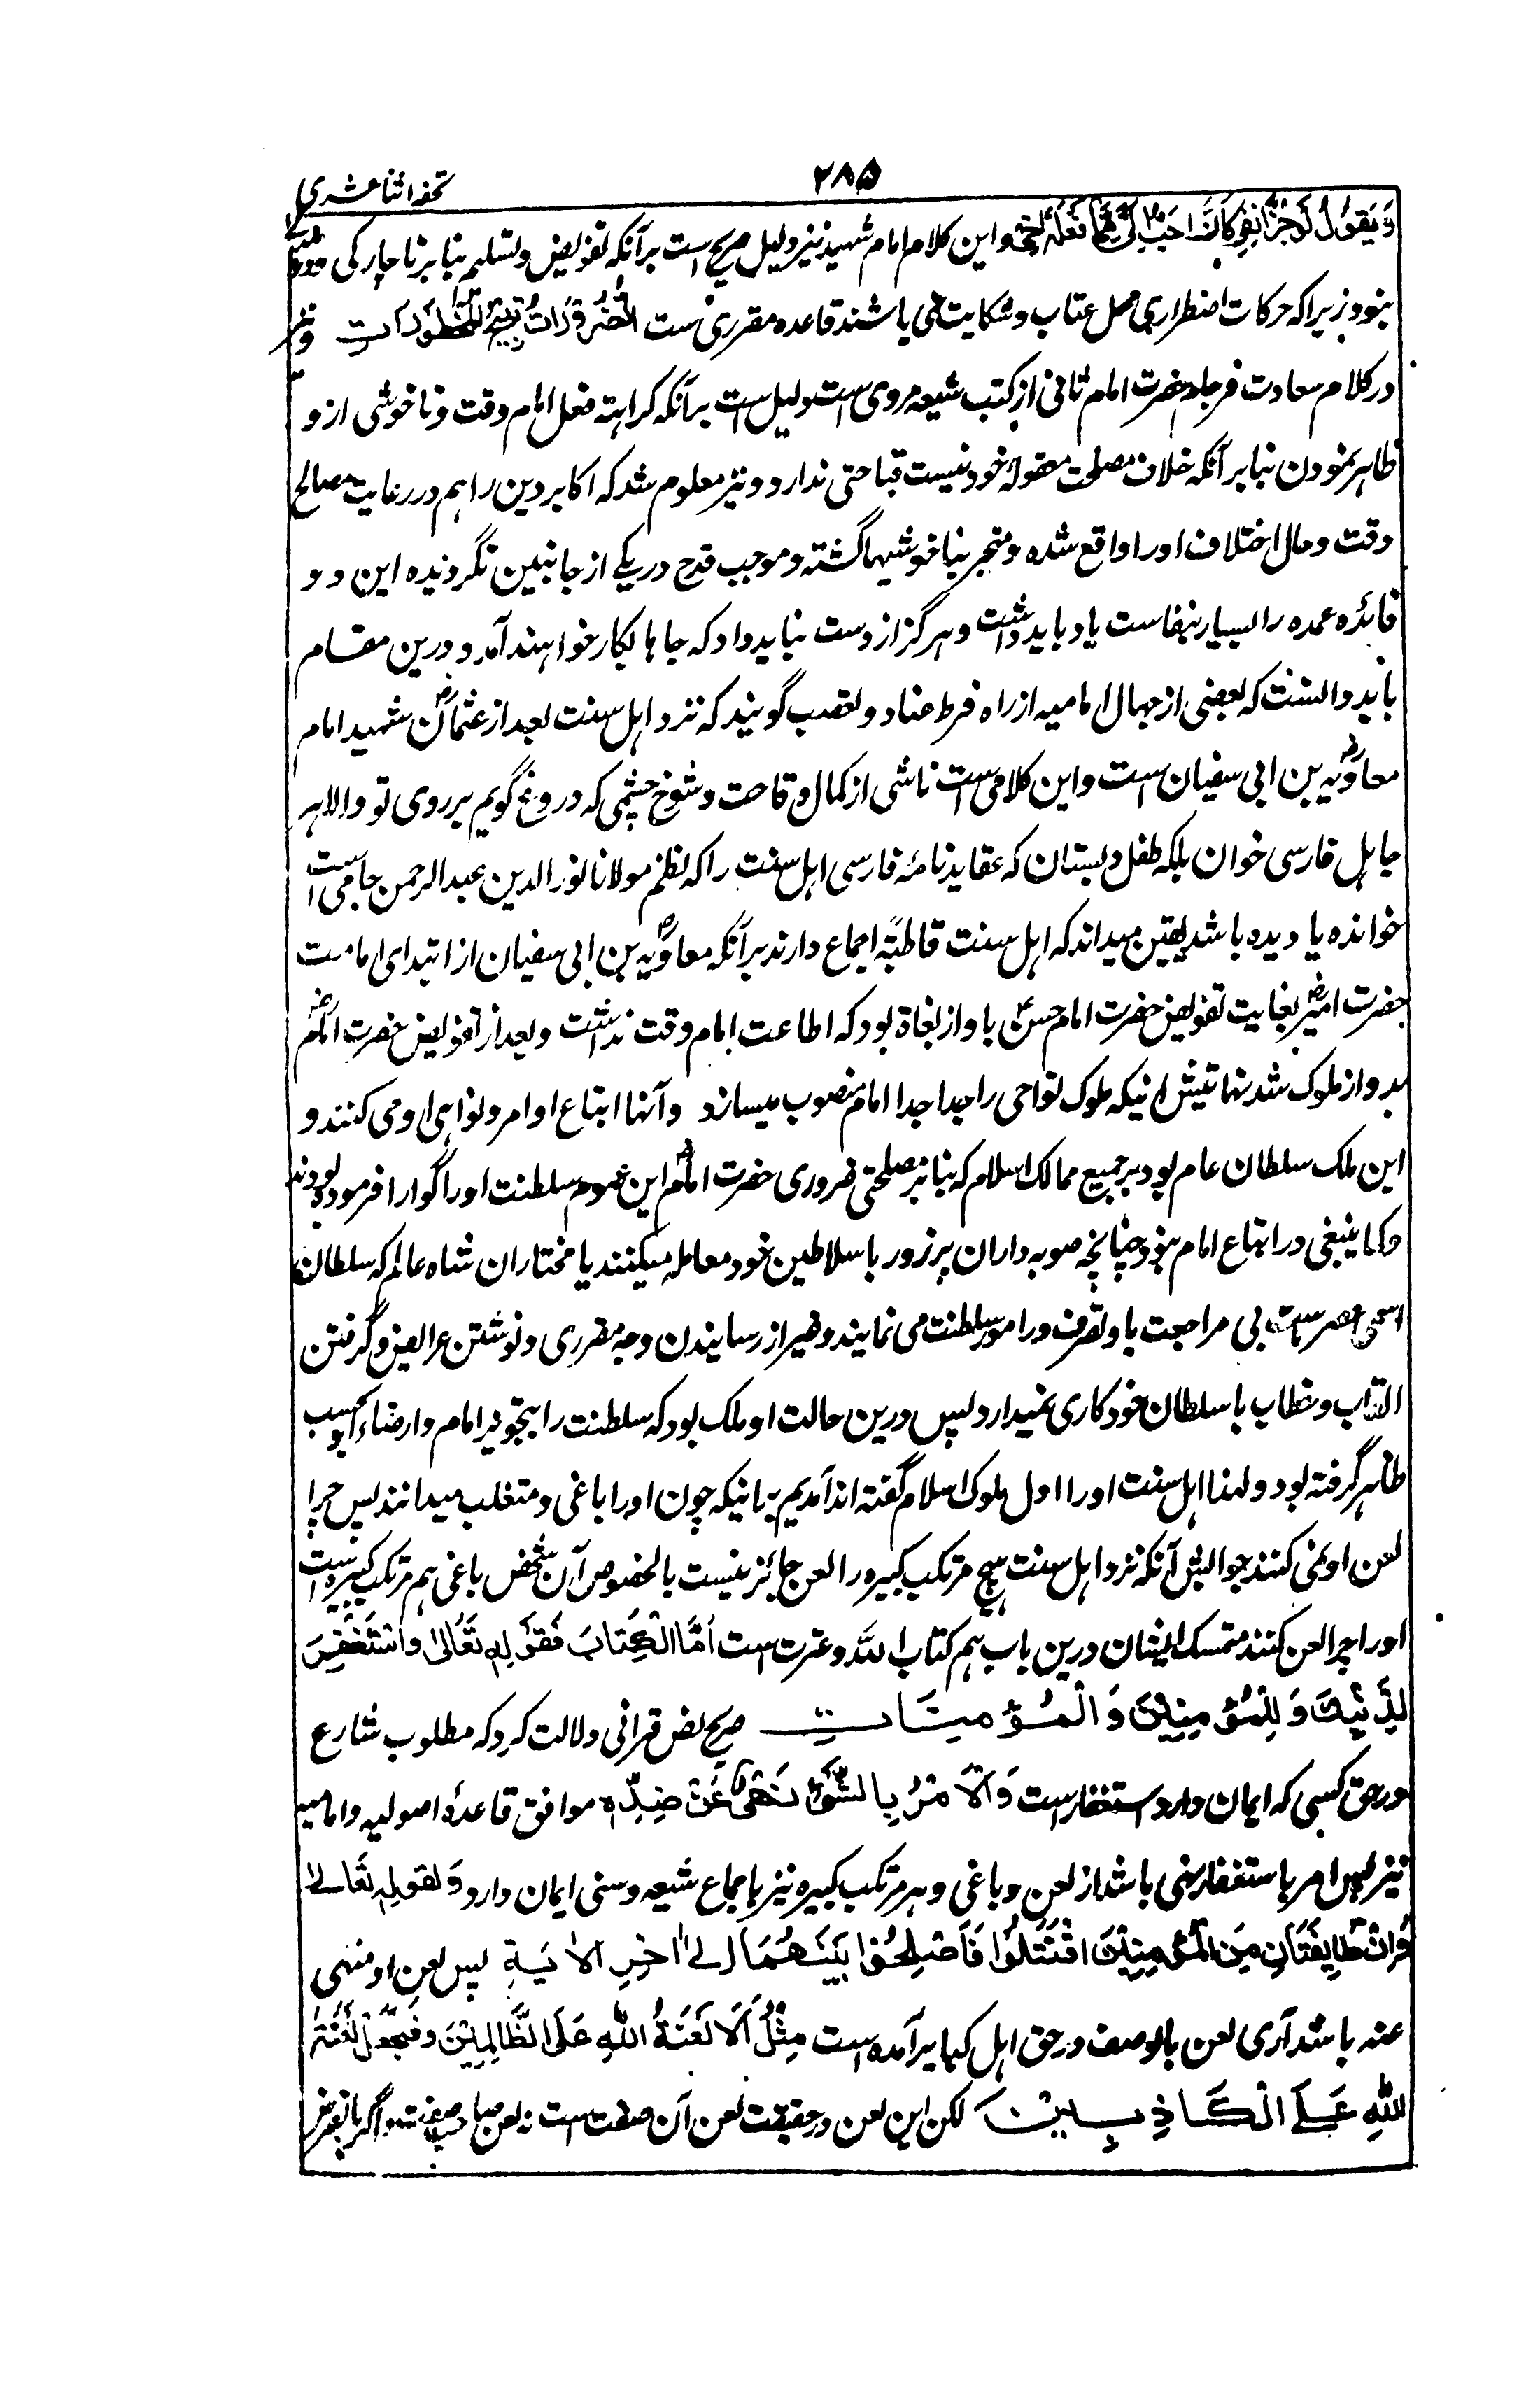 ۲۸۵
تحفه اثنا عشری
وَيَقُولُ لَوْ جُزَّ اَنْفِي كَانَ اَحَبَّ اِلَيَّ مِمَّا فَعَلَهُ اَخِي و این کلام امام شهید نیز دلیل صریح است بر آنکه تفویض و تسلیم بنا بر ناچارگی
نبود زیرا که حرکات اضطراری محل عتاب و شکایت نمی باشند قاعده مقرری است اَلضَّرُوْرَاتُ تُبِيْحُ الْمَحْظُوْرَاتِ و نیز
در کلام سعادت فرجام حضرت امام ثانی از کتب شیعه مروی است دلیل است بر آنکه کراهة فعل امام وقت و ناخوشی ازو
ظاهر نمودن بنا بر آنکه خلاف مصلحت معقوله خود نیست قباحتی ندارد و نیز معلوم شد که اکابر دین را هم در رعایت مصالح
وقت و حال اختلاف اورا واقع شده و منجر بناخوشیها گشته و موجب قدح در یکے از جانبین نگردیده این دو
فائده عمده را بسیار بنفاست یاد باید داشت و هرگز از دست نباید داد که جاها بکار خواهند آمد و درین مقام
باید دانست که بعضی از جهال امامیه از راه فرط عناد و تعصب گویند که نزد اهل سنت بعد از عثمان رض شهید امام
معاویه رض بن ابی سفیان است و این کلامی است ناشی از کمال وقاحت و شوخ چشمی که دروغ گویم بر روی تو والا هر
جاهل فارسی خوان بلکه طفل دبستان که عقاید نامهٔ فارسی اهل سنت را که نظم مولانا نور الدین عبد الرحمن جامی است
خوانده یا دیده باشد یقین میداند که اهل سنت قاطبةً اجماع دارند بر آنکه معاویه رض بن ابی سفیان از ابتدای امامت
حضرت امیر رض بغایت تفویض حضرت امام حسن باو از بغاة بود که اطاعت امام وقت نداشت و بعد از تفویض حضرت امام رض
بدو از ملوک شد نهایتش اینکه ملوک نواحی را جدا جدا امام منصوب میسازد و آنها اتباع اوامر و نواهی او می کنند و
این ملک سلطان عام بود بر جمیع ممالک اسلام که بنا بر مصلحتی ضروری حضرت امام رض این عموم سلطنت اورا گوارا فرموده بودند
و کما ینبغی در اتباع امام نبود چنانچه صوبه داران پرزور با سلاطین خود معامله میکنند یا مختاران شاه عالم که سلطان
اسمی عصر ماست بی مراجعت باو تصرف در امور سلطنت می نمایند و غیر از رسانیدن وجه مقرری و نوشتن عرایض و گرفتن
القاب و خطاب با سلطان خود کاری نمیدارد پس درین حالت او ملک بود که سلطنت را بتجویز امام و ارضاء او بحسب
ظاهر گرفته بود و لهذا اهل سنت اورا اول ملوک اسلام گفته اند آمدیم بر اینکه چون اورا باغی و متغلب میدانند پس چرا
لعن او نمی کنند جوابش آنکه نزد اهل سنت هیچ مرتکب کبیره را لعن جائز نیست بالخصوص آن شخص باغی هم مرتکب کبیره است
اورا چرا لعن کنند متمسک ایشان درین باب هم کتاب الله و عترت است اَمَّا الْكِتَابُ فَقَوْلِهِ تَعَالٰى وَاسْتَغْفِرْ
لِذَنْبِكَ وَلِلْمُؤْمِنِيْنَ وَالْمُؤْمِنَاتِ صریح نص قرانی دلالت کرد که مطلوب شارع
در حق کسی که ایمان دارد استغفار است وَالْاَمْرُ بِالشَّيْءِ نَهْيٌ عَنْ ضِدِّهٖ موافق قاعدهٔ اصولیه و امامیه
نیز پس امر باستغفار نهی باشد از لعن و باغی و هر مرتکب کبیره نیز باجماع شیعه و سنی ایمان دارد وَلِقَوْلِهِ تَعَالٰے
وَاِنْ طَائِفَتَانِ مِنَ الْمُؤْمِنِيْنَ اقْتَتَلُوْا فَاَصْلِحُوْا بَيْنَهُمَا اِلٰے اٰخِرِ الْاٰيَةِ پس لعن او منهی
عنه باشد آری لعن بالوصف در حق اهل کبایر آمده است مِثْلُ اَلَا لَعْنَةُ اللّٰهِ عَلَى الظَّالِمِيْنَ وَفَنَجْعَلْ لَعْنَةَ
اللّٰهِ عَلَى الْكَاذِبِيْنَ لکن این لعن در حقیقت لعن آن صفت است نه لعن صاحب صفت و اگر بالفرض